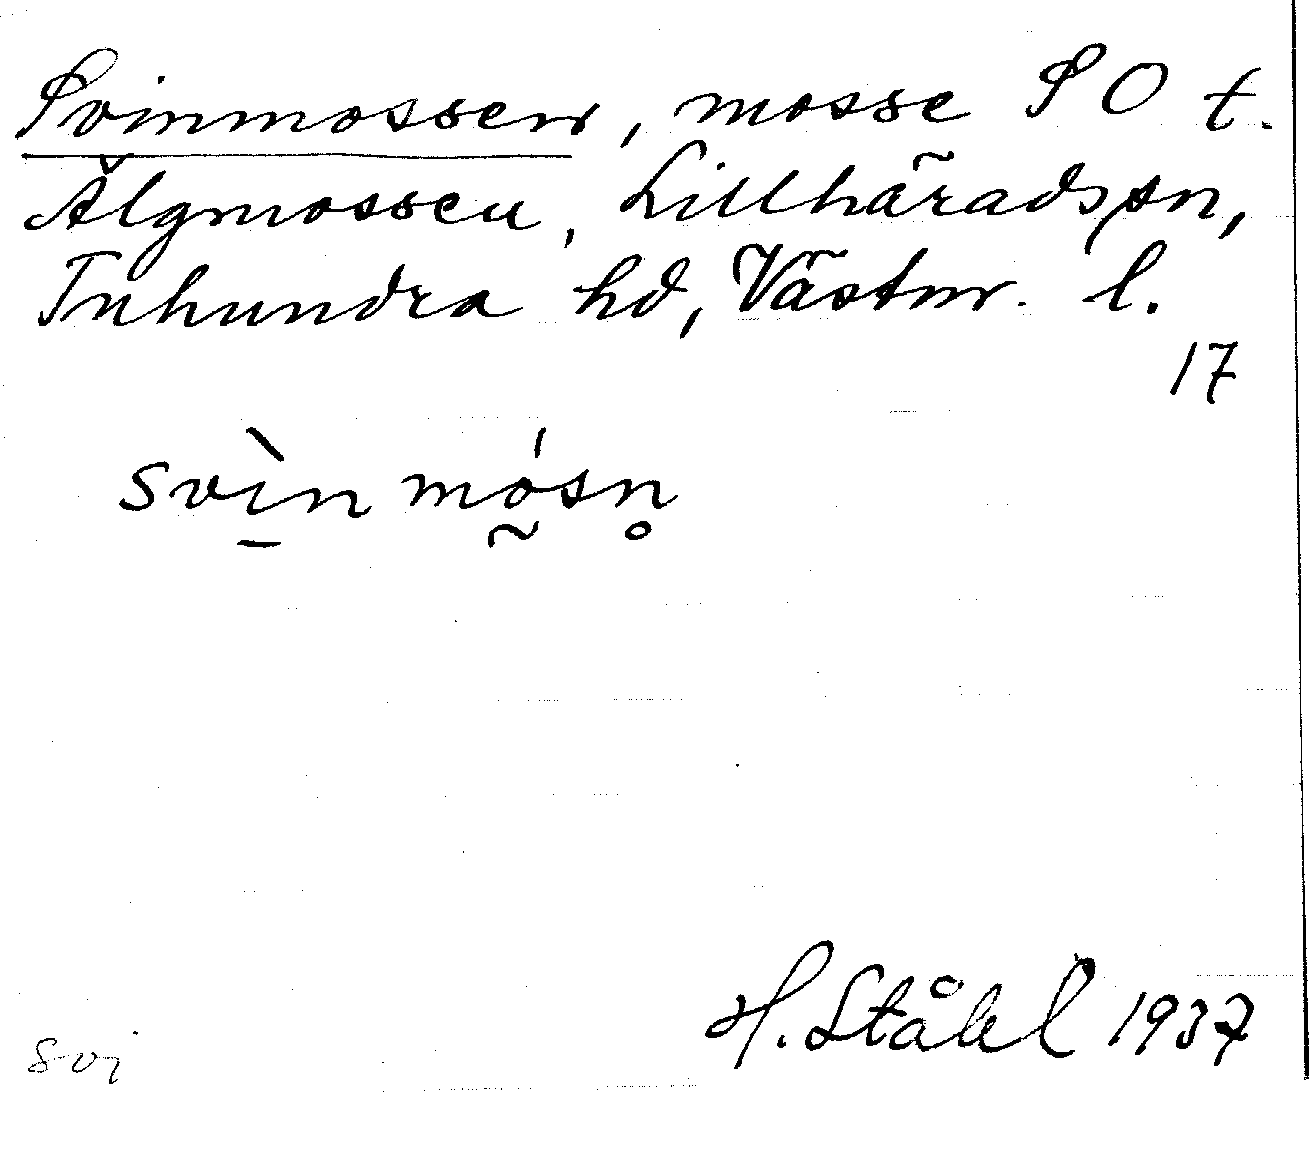 Svinmossen, mosse SO t.
Älgmossen, Lillhäradssn,
Tuhundra hd, Västm. l.
17
svı̀n mǫ́sn̥
H. Ståhl 1937
svi